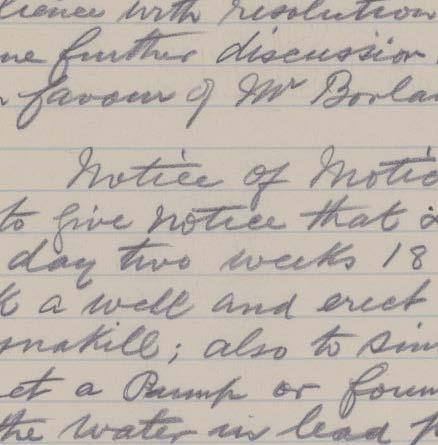 lience with resolution
me further discussion
favour of Mr Borla
Notice of Motio
to give notice that
day two weeks 18
k a well and erect
nakill; also to sin
ct a Pump or foun
the water in lead p